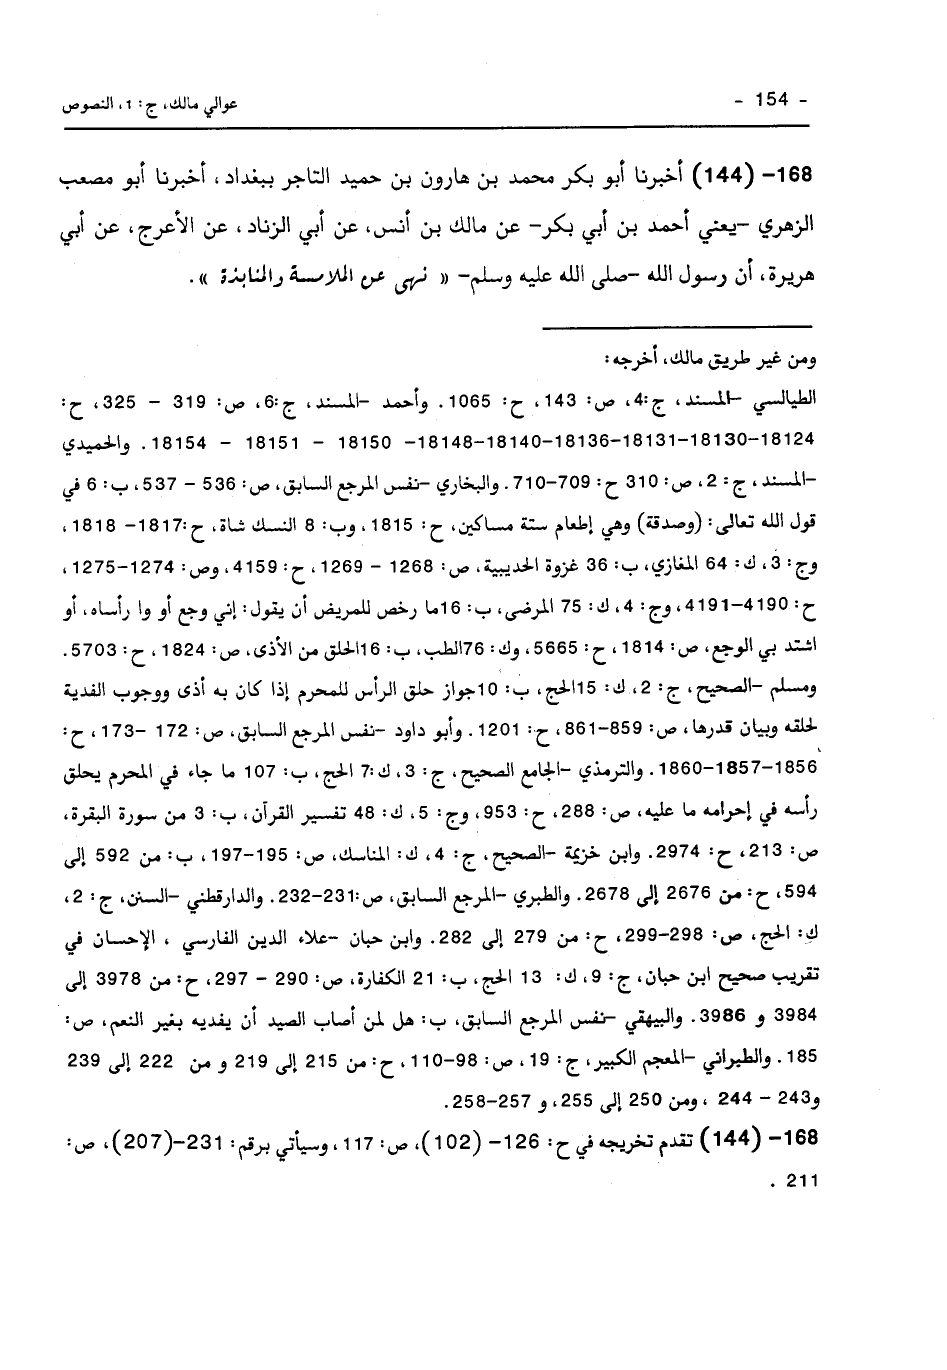 - 154 -
عوالي مالك، ج: 1، النصوص
168- (144) أخبرنا أبو بكر محمد بن هارون بن حميد التاجر ببغداد، أخبرنا أبو مصعب
الزهري -يعني أحمد بن أبي بكر- عن مالك بن أنس، عن أبي الزناد، عن الأعرج، عن أبي
هريرة، أن رسول الله -صلى الله عليه وسلم- « نهى عن الملامسة والمنابذة ».
ومن غير طريق مالك، أخرجه:
الطيالسي -المسند، ج:4، ص: 143، ح: 1065. وأحمد -المسند، ج:6، ص: 319 - 325، ح:
18124-18130-18131-18136-18140-18148- 18150 - 18151 - 18154. والحميدي
-المسند، ج: 2، ص: 310 ح: 709-710. والبخاري -نفس المرجع السابق، ص: 536 - 537، ب: 6 في
قول الله تعالى: (وصدقة) وهي إطعام ستة مساكين، ح: 1815، وب: 8 النسك شاة، ح:1817- 1818،
وج: 3، ك: 64 المغازي، ب: 36 غزوة الحديبية، ص: 1268 - 1269، ح: 4159، وص: 1274-1275،
ح: 4190-4191، وج: 4، ك: 75 المرضى، ب: 16ما رخص للمريض أن يقول: إني وجع أو وا رأساه، أو
اشتد بي الوجع، ص: 1814، ح: 5665، وك: 76الطب، ب: 16الحلق من الأذى، ص: 1824، ح: 5703.
ومسلم -الصحيح، ج: 2، ك: 15الحج، ب: 10جواز حلق الرأس للمحرم إذا كان به أذى ووجوب الفدية
لحلقه وبيان قدرها، ص: 859-861، ح: 1201. وأبو داود -نفس المرجع السابق، ص: 172 -173، ح:
1856-1857-1860. والترمذي -الجامع الصحيح، ج: 3، ك:7 الحج، ب: 107 ما جاء في المحرم يحلق
رأسه في إحرامه ما عليه، ص: 288، ح: 953، وج: 5، ك: 48 تفسير القرآن، ب: 3 من سورة البقرة،
ص: 213، ح: 2974. وابن خزيمة -الصحيح، ج: 4، ك: المناسك، ص: 195-197، ب: من 592 إلى
594، ح: من 2676 إلى 2678. والطبري -المرجع السابق، ص:231-232. والدارقطني -السنن، ج: 2،
ك: الحج، ص: 298-299، ح: من 279 إلى 282. وابن حبان -علاء الدين الفارسي ، الإحسان في
تقريب صحيح ابن حبان، ج: 9، ك: 13 الحج، ب: 21 الكفارة، ص: 290 - 297، ح: من 3978 إلى
3984 و 3986. والبيهقي -نفس المرجع السابق، ب: هل لمن أصاب الصيد أن يفديه بغير النعم، ص:
185. والطبراني -المعجم الكبير، ج: 19، ص: 98-110، ح: من 215 إلى 219 و من 222 إلى 239
و243 - 244 ، ومن 250 إلى 255، و 257-258.
168- (144) تقدم تخريجه في ح: 126- (102)، ص: 117، وسيأتي برقم: 231-(207)، ص:
211 .